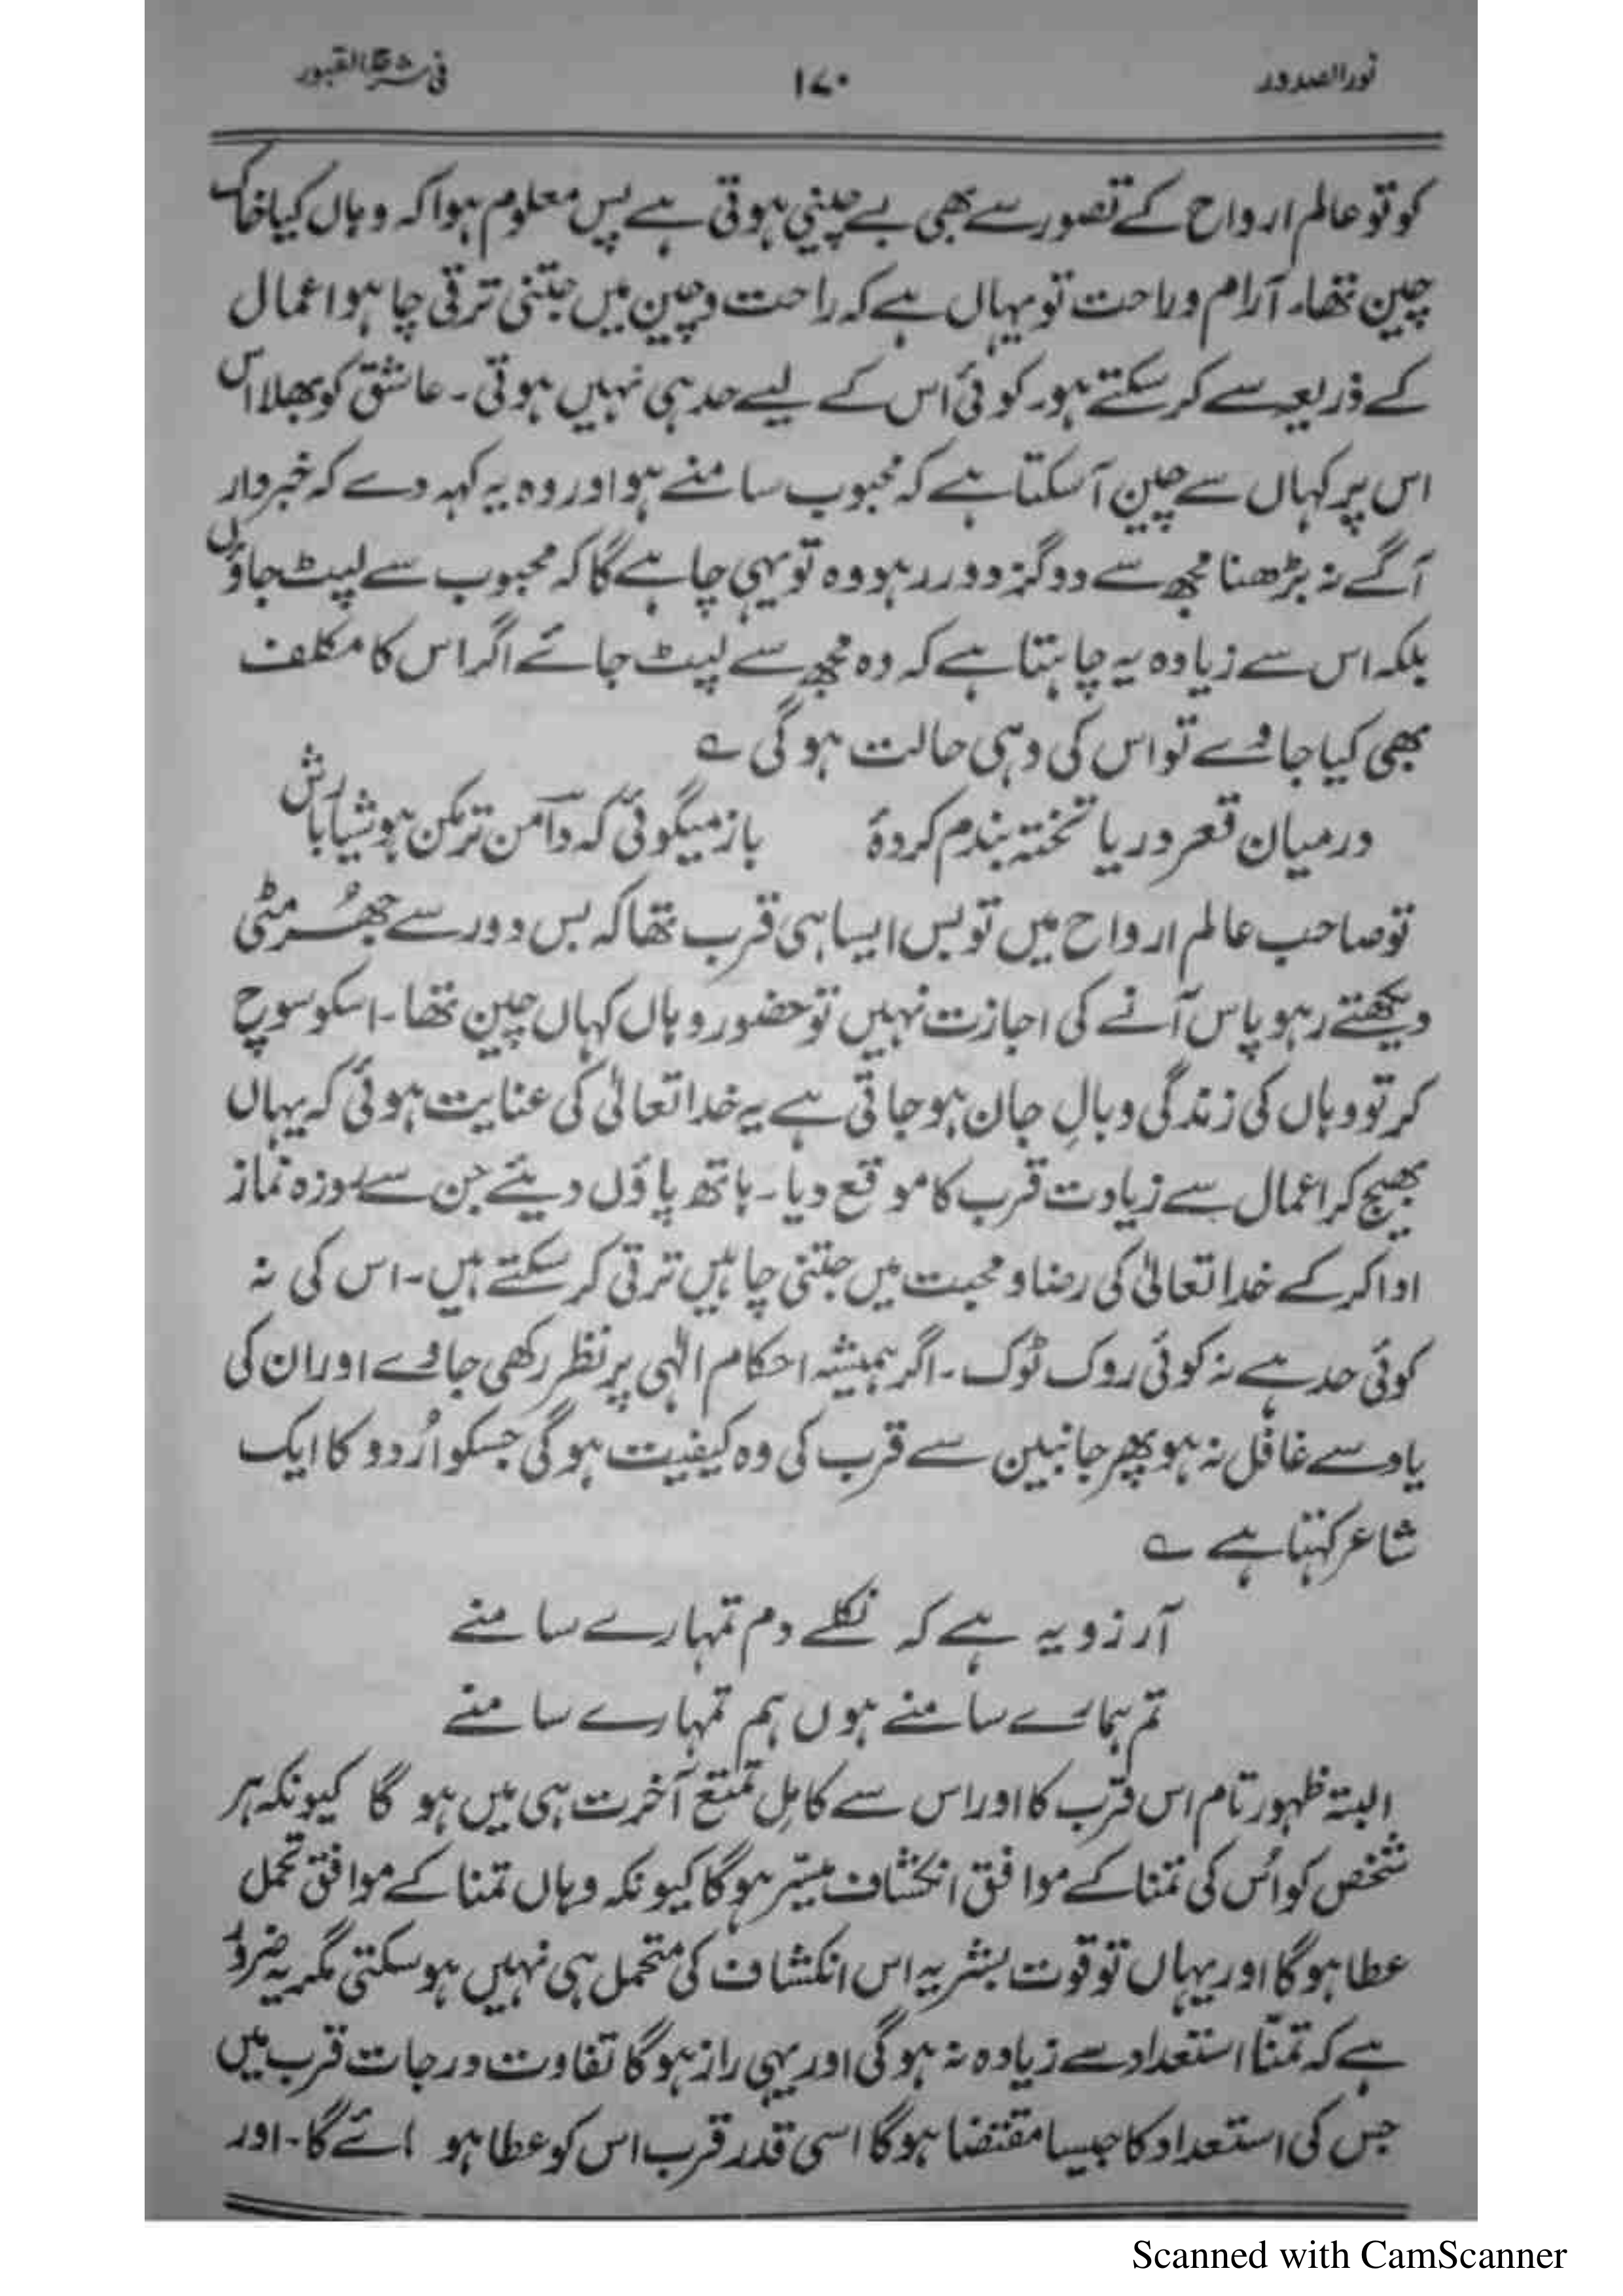 نور الصدور ۱۷۰ فی شرح القبور
کو تو عالم ارواح کے تصور سے بھی بے چینی ہوتی ہے پس معلوم ہوا کہ وہاں کیا خاک
چین تھا۔ آرام و راحت تو یہاں ہے کہ راحت و چین میں جتنی ترقی چاہو اعمال
کے ذریعہ سے کر سکتے ہو۔ کوئی اس کے لیے حد ہی نہیں ہوتی۔ عاشق کو بھلا اس
اس پر کہاں سے چین آ سکتا ہے کہ محبوب سامنے ہو اور وہ یہ کہہ دے کہ خبردار
آگے نہ بڑھنا مجھ سے دو گز دور رہو وہ تو یہی چاہے گا کہ محبوب سے لپٹ جاؤں
بلکہ اس سے زیادہ یہ چاہتا ہے کہ وہ مجھ سے لپٹ جائے اگر اس کا مکلف
بھی کیا جاوے تو اس کی وہی حالت ہو گی ے
درمیان قعر دریا تختہ بندم کردۂ باز میگوئی کہ دامن تر مکن ہوشیار باش
تو صاحب عالم ارواح میں تو بس ایسا ہی قرب تھا کہ بس دور سے جھُرمٹی
دیکھتے رہو پاس آنے کی اجازت نہیں تو حضور وہاں کہاں چین تھا۔ اسکو سوچ
کر تو وہاں کی زندگی وبالِ جان ہو جاتی ہے یہ خدا تعالیٰ کی عنایت ہوئی کہ یہاں
بھیج کر اعمال سے زیادت قرب کا موقع دیا۔ ہاتھ پاؤں دیئے جن سے روزہ نماز
ادا کر کے خدا تعالیٰ کی رضا و محبت میں جتنی چاہیں ترقی کر سکتے ہیں۔ اس کی نہ
کوئی حد ہے نہ کوئی روک ٹوک۔ اگر ہمیشہ احکام الٰہی پر نظر رکھی جاوے اور ان کی
یاد سے غافل نہ ہو پھر جانبین سے قرب کی وہ کیفیت ہو گی جسکو اُردو کا ایک
شاعر کہتا ہے ے
آرزو یہ ہے کہ نکلے دم تمہارے سامنے
تم ہمارے سامنے ہوں ہم تمہارے سامنے
البتہ ظہور تام اس قرب کا اور اس سے کامل تمتع آخرت ہی میں ہو گا کیونکہ ہر
شخص کو اُس کی تمنا کے موافق انکشاف میسّر ہو گا کیونکہ وہاں تمنا کے موافق تحمل
عطا ہو گا اور یہاں تو قوت بشریہ اس انکشاف کی متحمل ہی نہیں ہو سکتی مگر یہ ضرور
ہے کہ تمنّا استعداد سے زیادہ نہ ہو گی اور یہی راز ہو گا تفاوت درجات قرب میں
جس کی استعداد کا جیسا مقتضا ہو گا اسی قدر قرب اس کو عطا ہو ائے گا۔ اور
Scanned with CamScanner